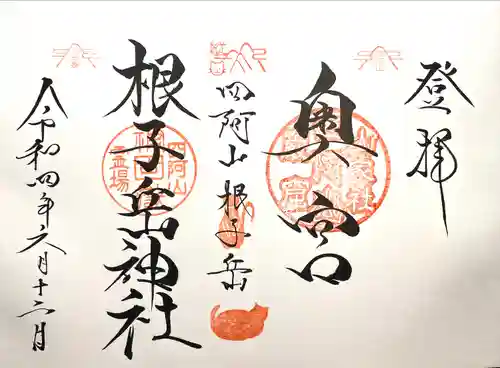 登拝
奥宮
四阿山 根子岳
根子岳神社
令和四年六月十二日
四阿山
霊場